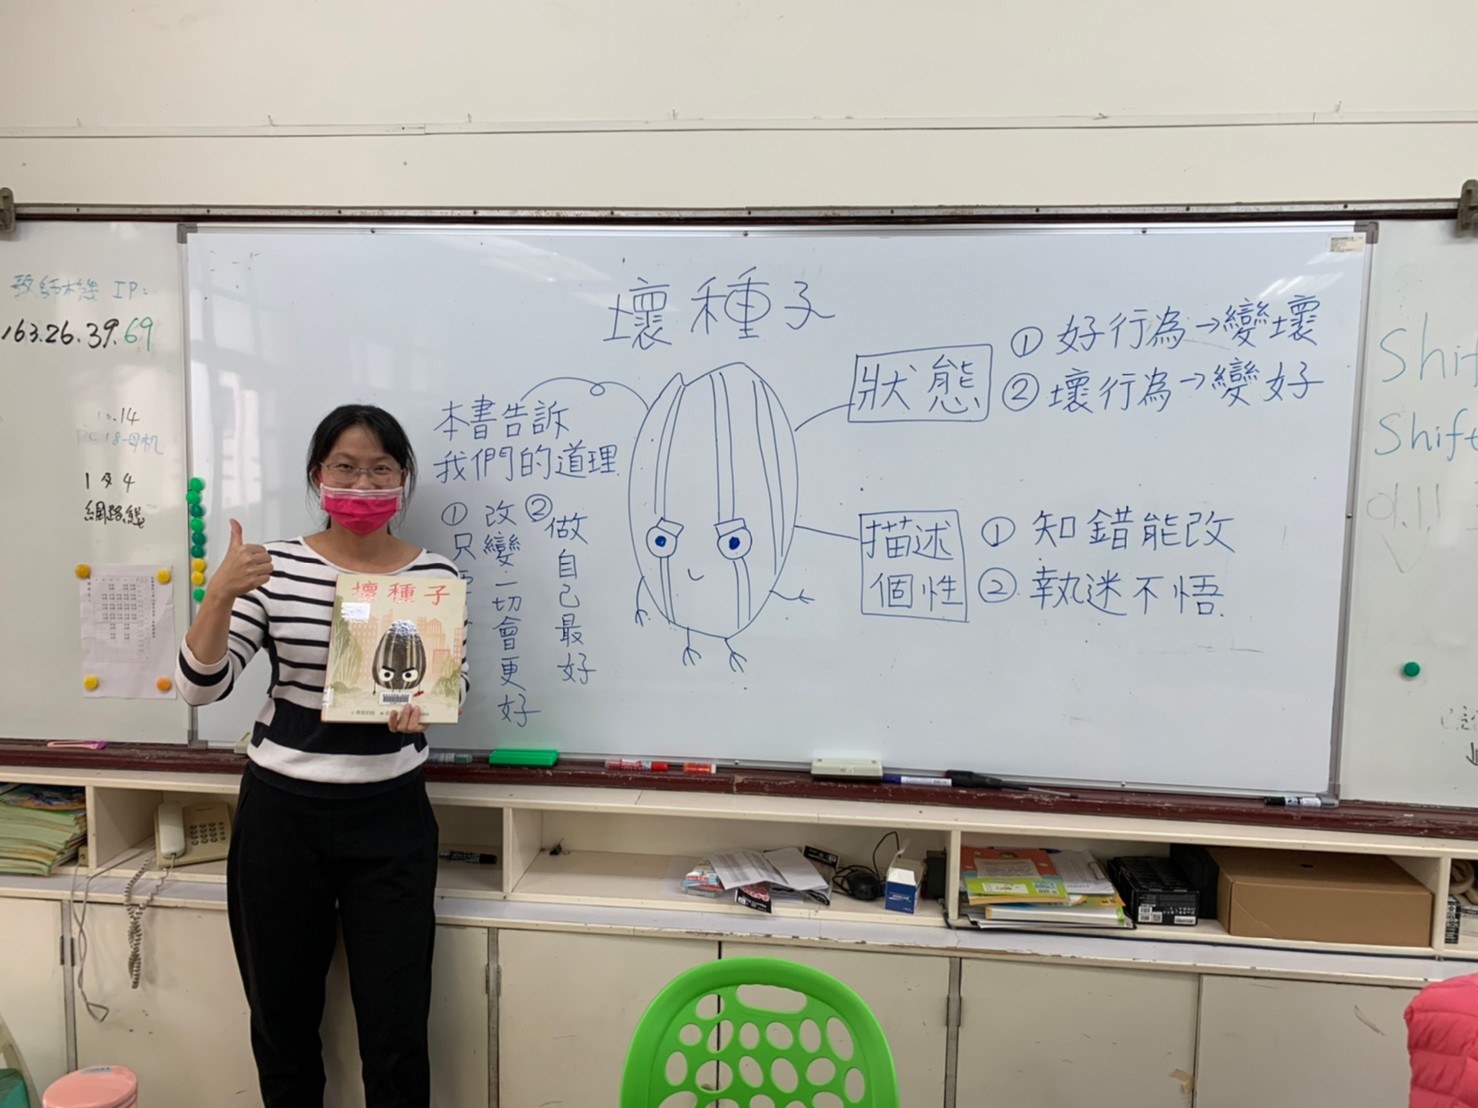 壞種子
狀態
① 好行為→變壞
② 壞行為→變好
描述
個性
① 知錯能改
② 執迷不悟
本書告訴
我們的道理
① 只
改變一切會更好
② 做自己最好
壞種子
教師機 IP:
163.26.39.69
.14
18-母机
網路線
Shif
Shift